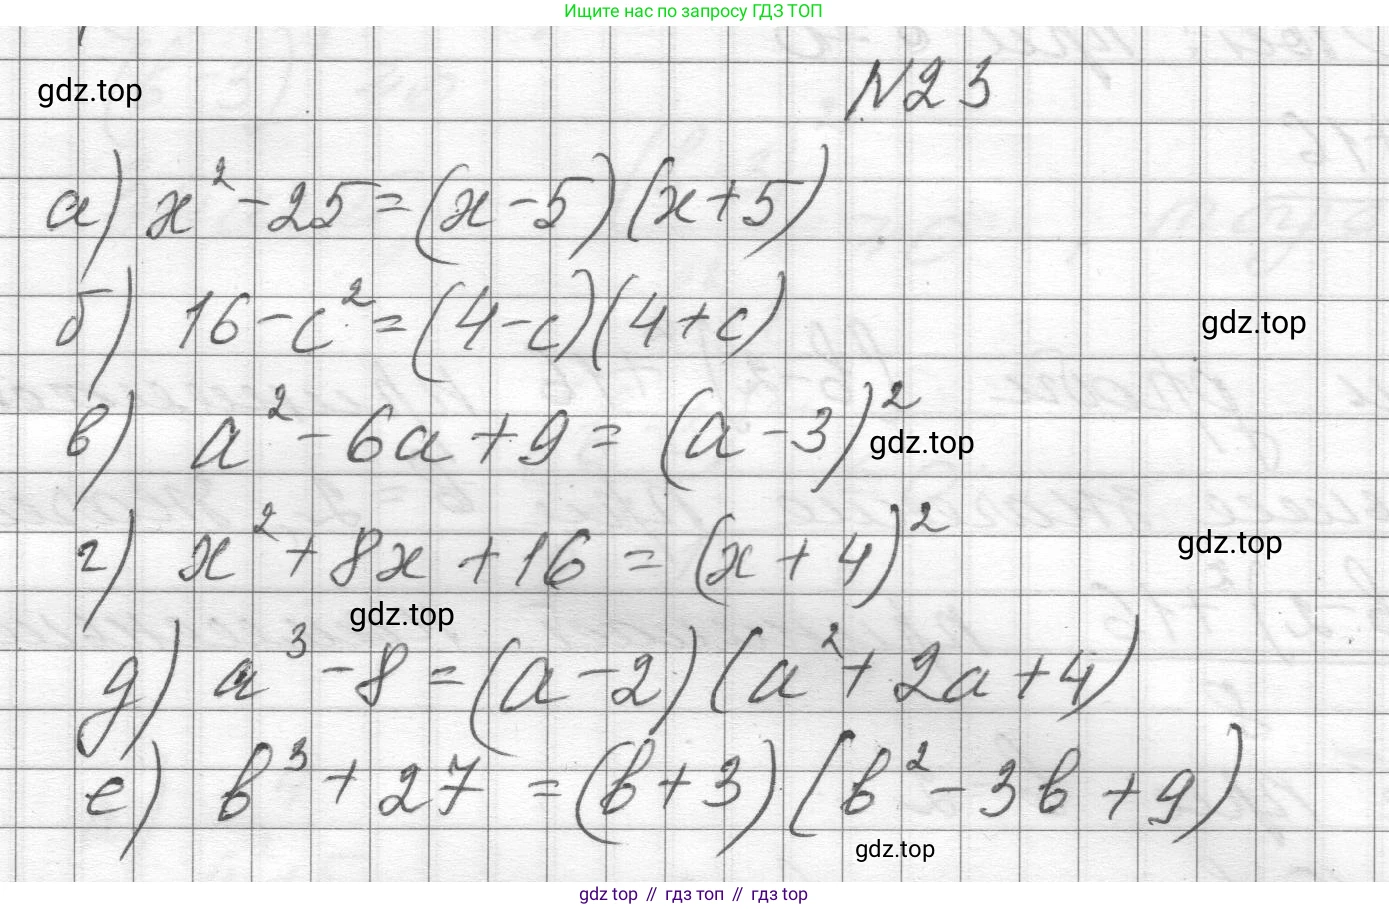 Ищите нас по запросу ГДЗ ТОП
№23
gdz.top
а) x² - 25 = (x - 5)(x + 5)
б) 16 - c² = (4 - c)(4 + c)
gdz.top
в) a² - 6a + 9 = (a - 3)²
gdz.top
г) x² + 8x + 16 = (x + 4)²
gdz.top
gdz.top
д) a³ - 8 = (a - 2)(a² + 2a + 4)
е) b³ + 27 = (b + 3)(b² - 3b + 9)
gdz.top
gdz top // гдз топ // гдз top